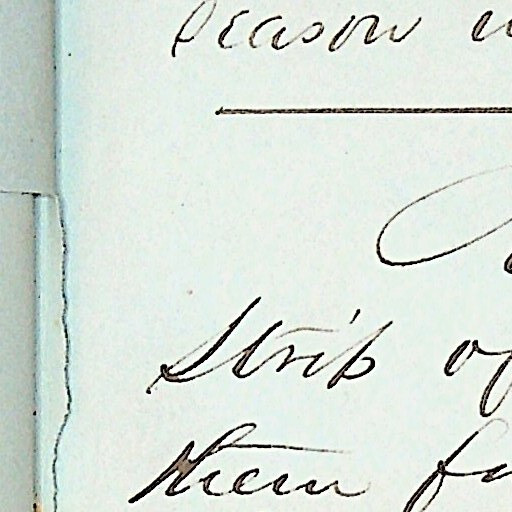 season
strip of
them